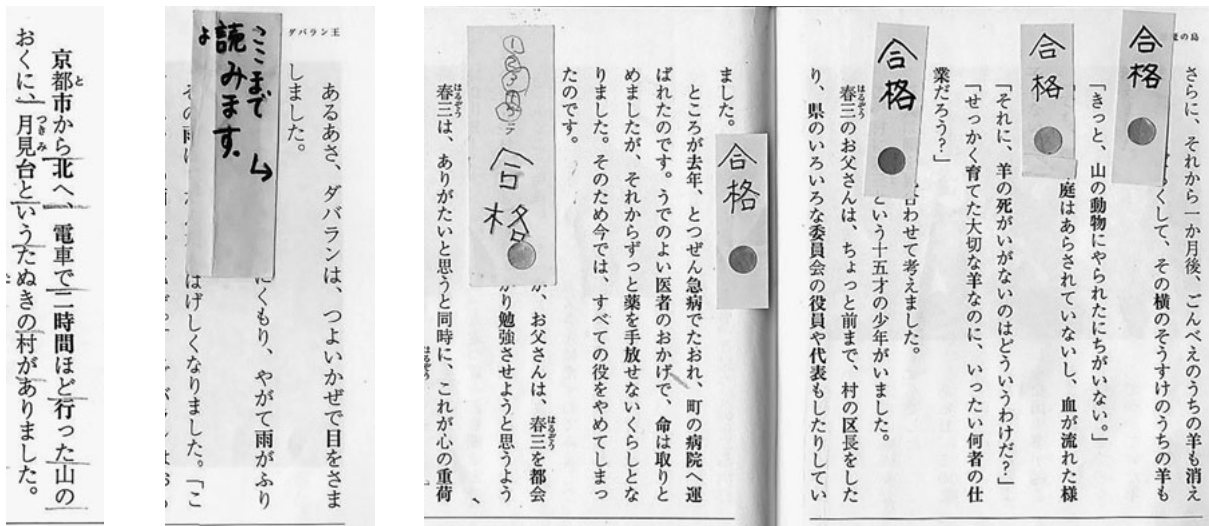 京都市から北へ、電車で二時間ほど行った山の
おくに、月見台というたぬきの村がありました。
ダバラン王
あるあさ、ダバランは、つよいかぜで目をさま
しました。
ここまで
読みます。
よ
にくもり、やがて雨がふり
はげしくなりました。「こ
さらに、それから一か月後、ごんべえのうちの羊も消え
くして、その横のそうすけのうちの羊も
合格
「きっと、山の動物にやられたにちがいない。」
合格
庭はあらされていないし、血が流れた様
「それに、羊の死がいがないのはどういうわけだ?」
「せっかく育てた大切な羊なのに、いったい何者の仕
業だろう?」
合格
合わせて考えました。
という十五才の少年がいました。
春三のお父さんは、ちょっと前まで、村の区長をした
り、県のいろいろな委員会の役員や代表もしたりしてい
ました。
合格
ところが去年、とつぜん急病でたおれ、町の病院へ運
ばれたのです。うでのよい医者のおかげで、命は取りと
めましたが、それからずっと薬を手放せないくらしとな
りました。そのため今では、すべての役をやめてしまっ
たのです。
合格
が、お父さんは、春三を都会
かり勉強させようと思うよう
春三は、ありがたいと思うと同時に、これが心の重荷